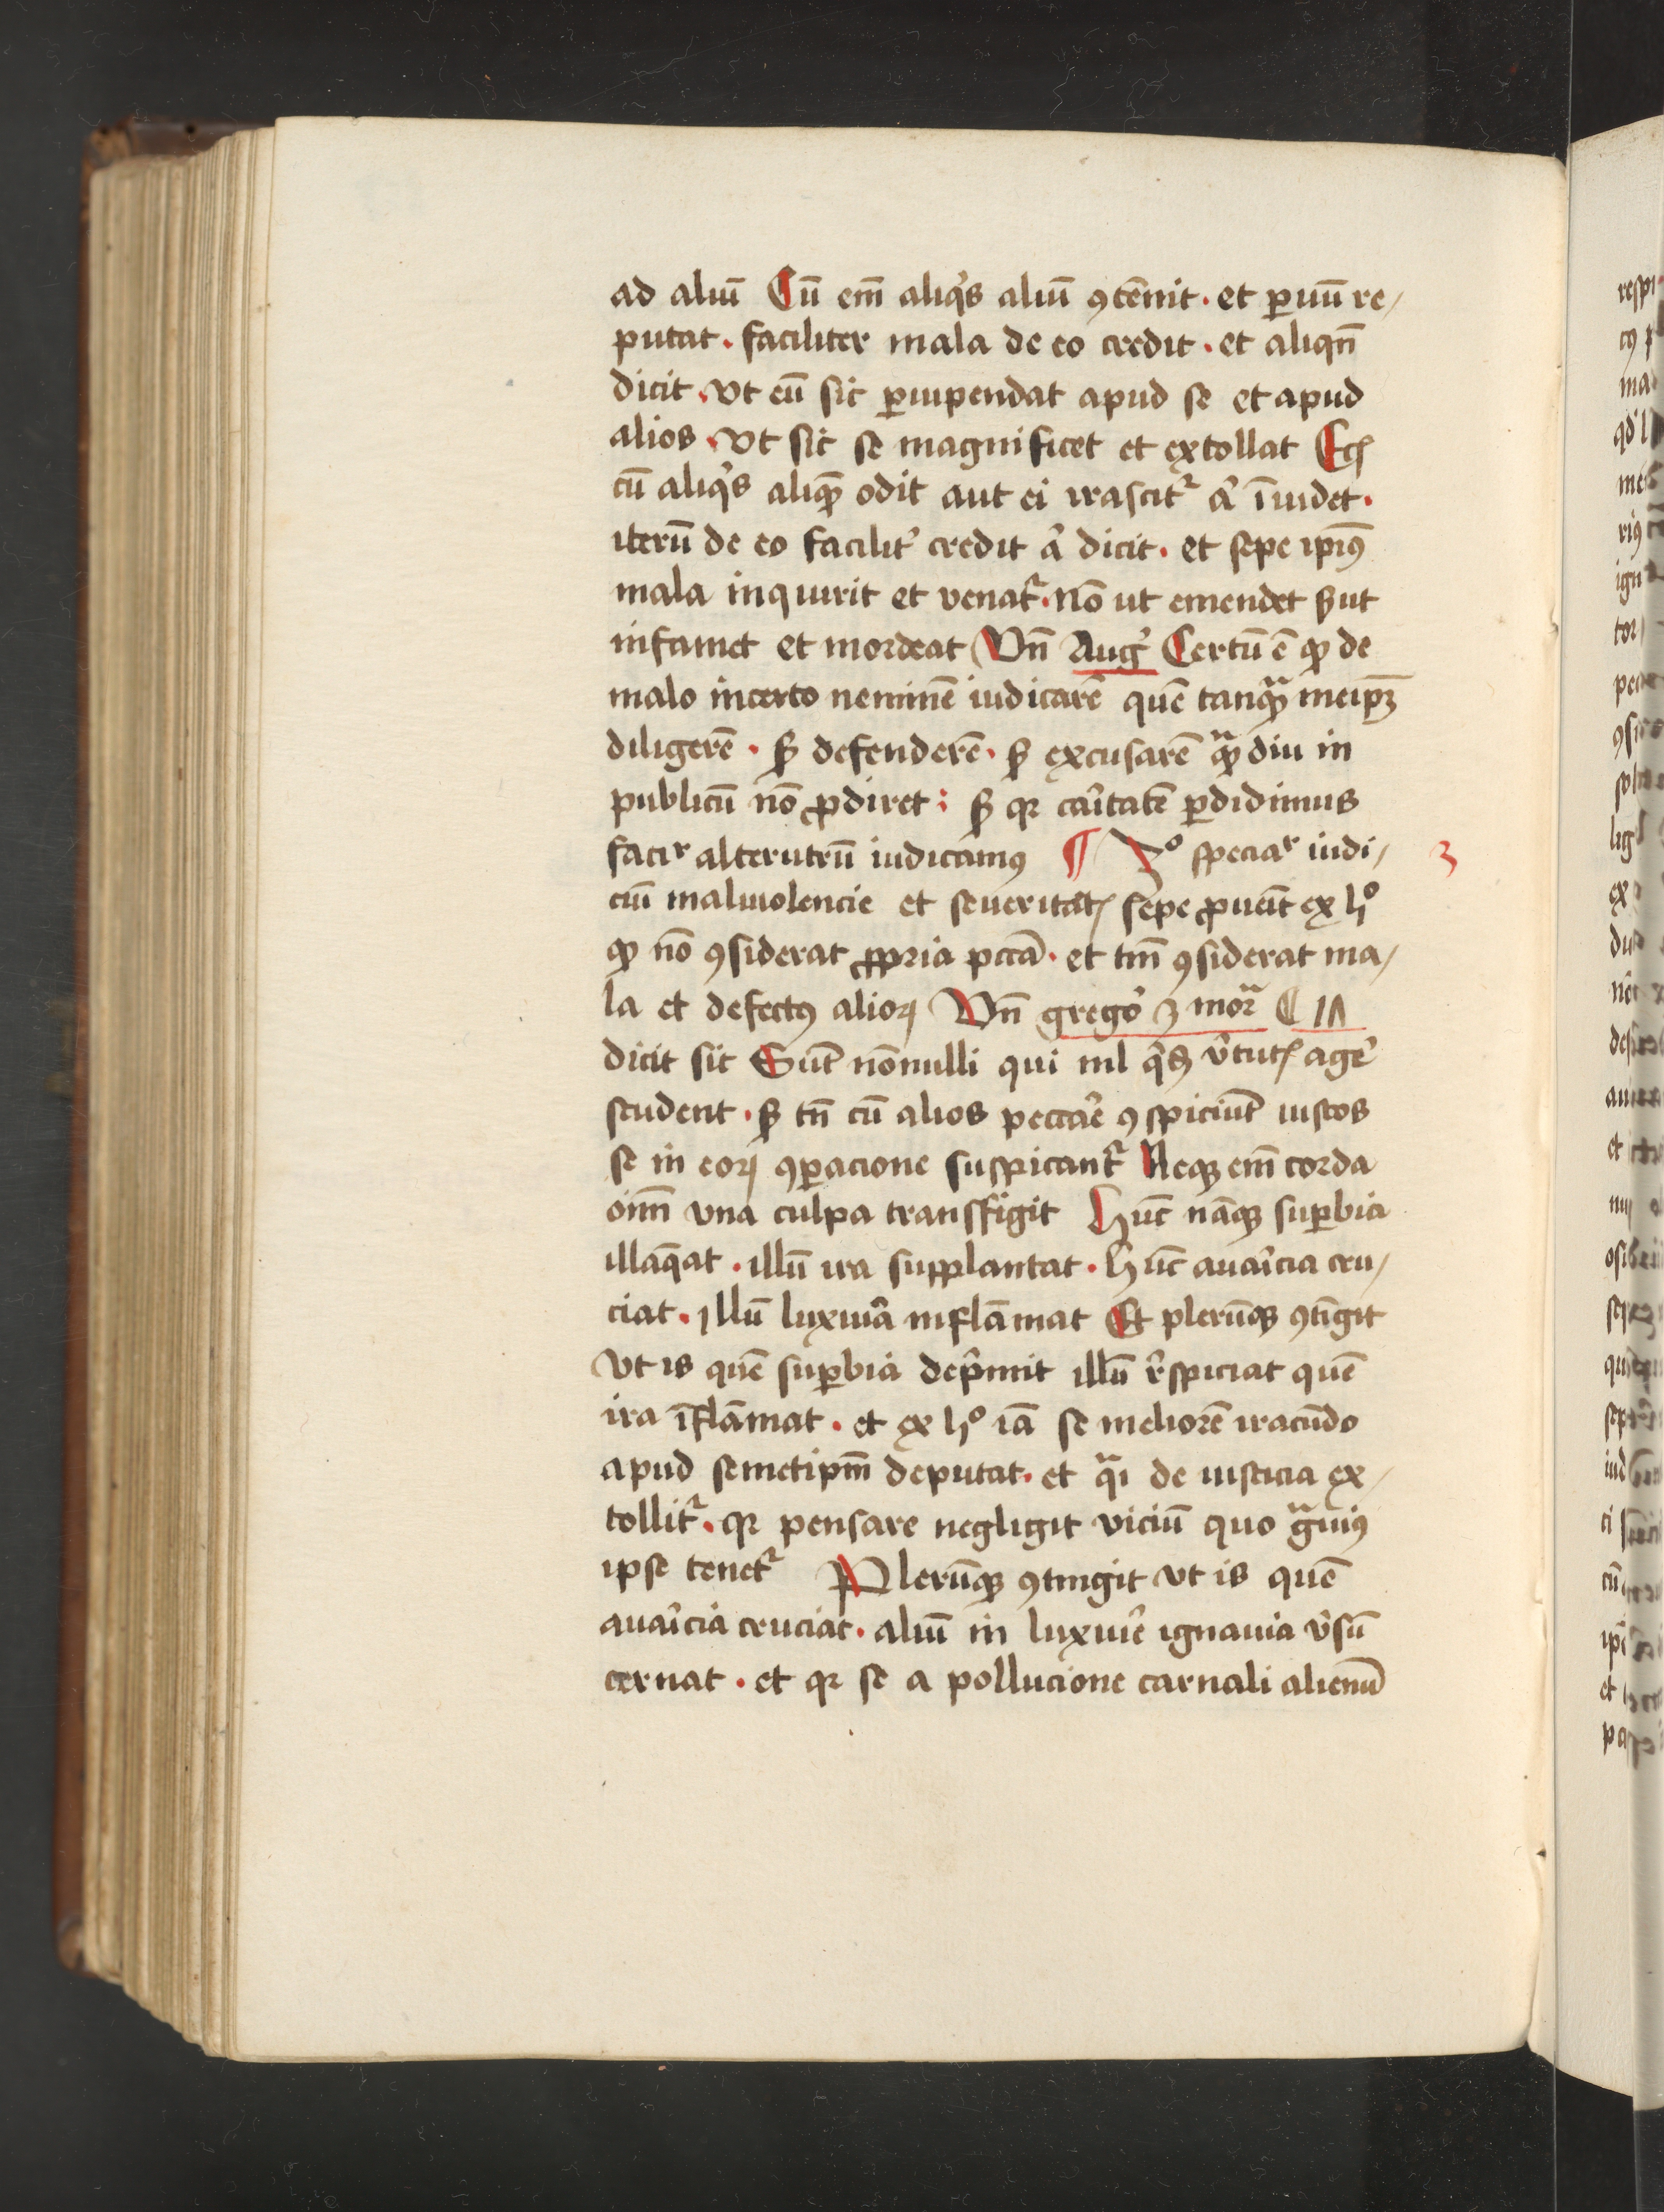 ad aliū Cū em̄ aliq's aliū ꝯtēnit · et ꝑuū re/
putat · faciliter mala de eo credit · et aliqn̄
dicit · vt eū sic ꝑuipendat apud se et apud
alios · vt sic se magnificet et extollat
cū aliq's aliquē odit aut ei irascit᷑ a' īuidet ·
iterū de eo facilit' credit a' dicit · et sepe ip̄iꝰ
mala inquirit et venat᷑ · nō ut emendet sꝫ ut
infamet et mordeat Vn̄ Aug' Certū ē ꝙ de
malo incerto neminē iudicarē quē tanqᷓ meip̄ꝫ
diligerē · sꝫ defenderē · sꝫ excusarē qᷓdiu in
publicū nō ꝓdiret : sꝫ qꝛ caritatē ꝑdidimus
facir alterutrū iudicamꝰ ¶ 3º speciar iudi/ 3
ciū maliuolencie et seueritatꝭ sepe ꝓuēit ex hº
ꝙ nō ꝯsiderat ꝓpria pctā · et tm̄ ꝯsiderat ma/
la et defectꝰ alioꝝ Vn̄ grego' 3 morᷓ
dicit sic Sūt nōnulli qui nl q'sꝫ v'tutꝭ age'
student · sꝫ tn̄ cū alios pecca'e ꝯspiciūt iustos
se in eoꝝ ꝯꝑacione suspicant᷑ Neqꝫ em̄ corda
oīm vna culpa transfigit Hūc nāqꝫ suꝑbia
illaq̄at · illū ira supplantat · hūc auaricia cru/
ciat · illū luxuria inflāmat Et plerūqꝫ ꝯtīgit
vt is quē suꝑbia dep'mit illū r'spiciat quē
ira īflāmat · et ex hº iā se meliorē iracūdo
apud semetipm̄ deputat · et qᷓi de iusticia ex/
tollit᷑ · qꝛ pensare negligit viciū quo gᷓuiꝰ
ipse tenet᷑ Plerūqꝫ ꝯtingit vt is quē
auaricia cruciat · aliū in luxurie ignauia v'sū
cernat · et qꝛ se a pollucione carnali alienū